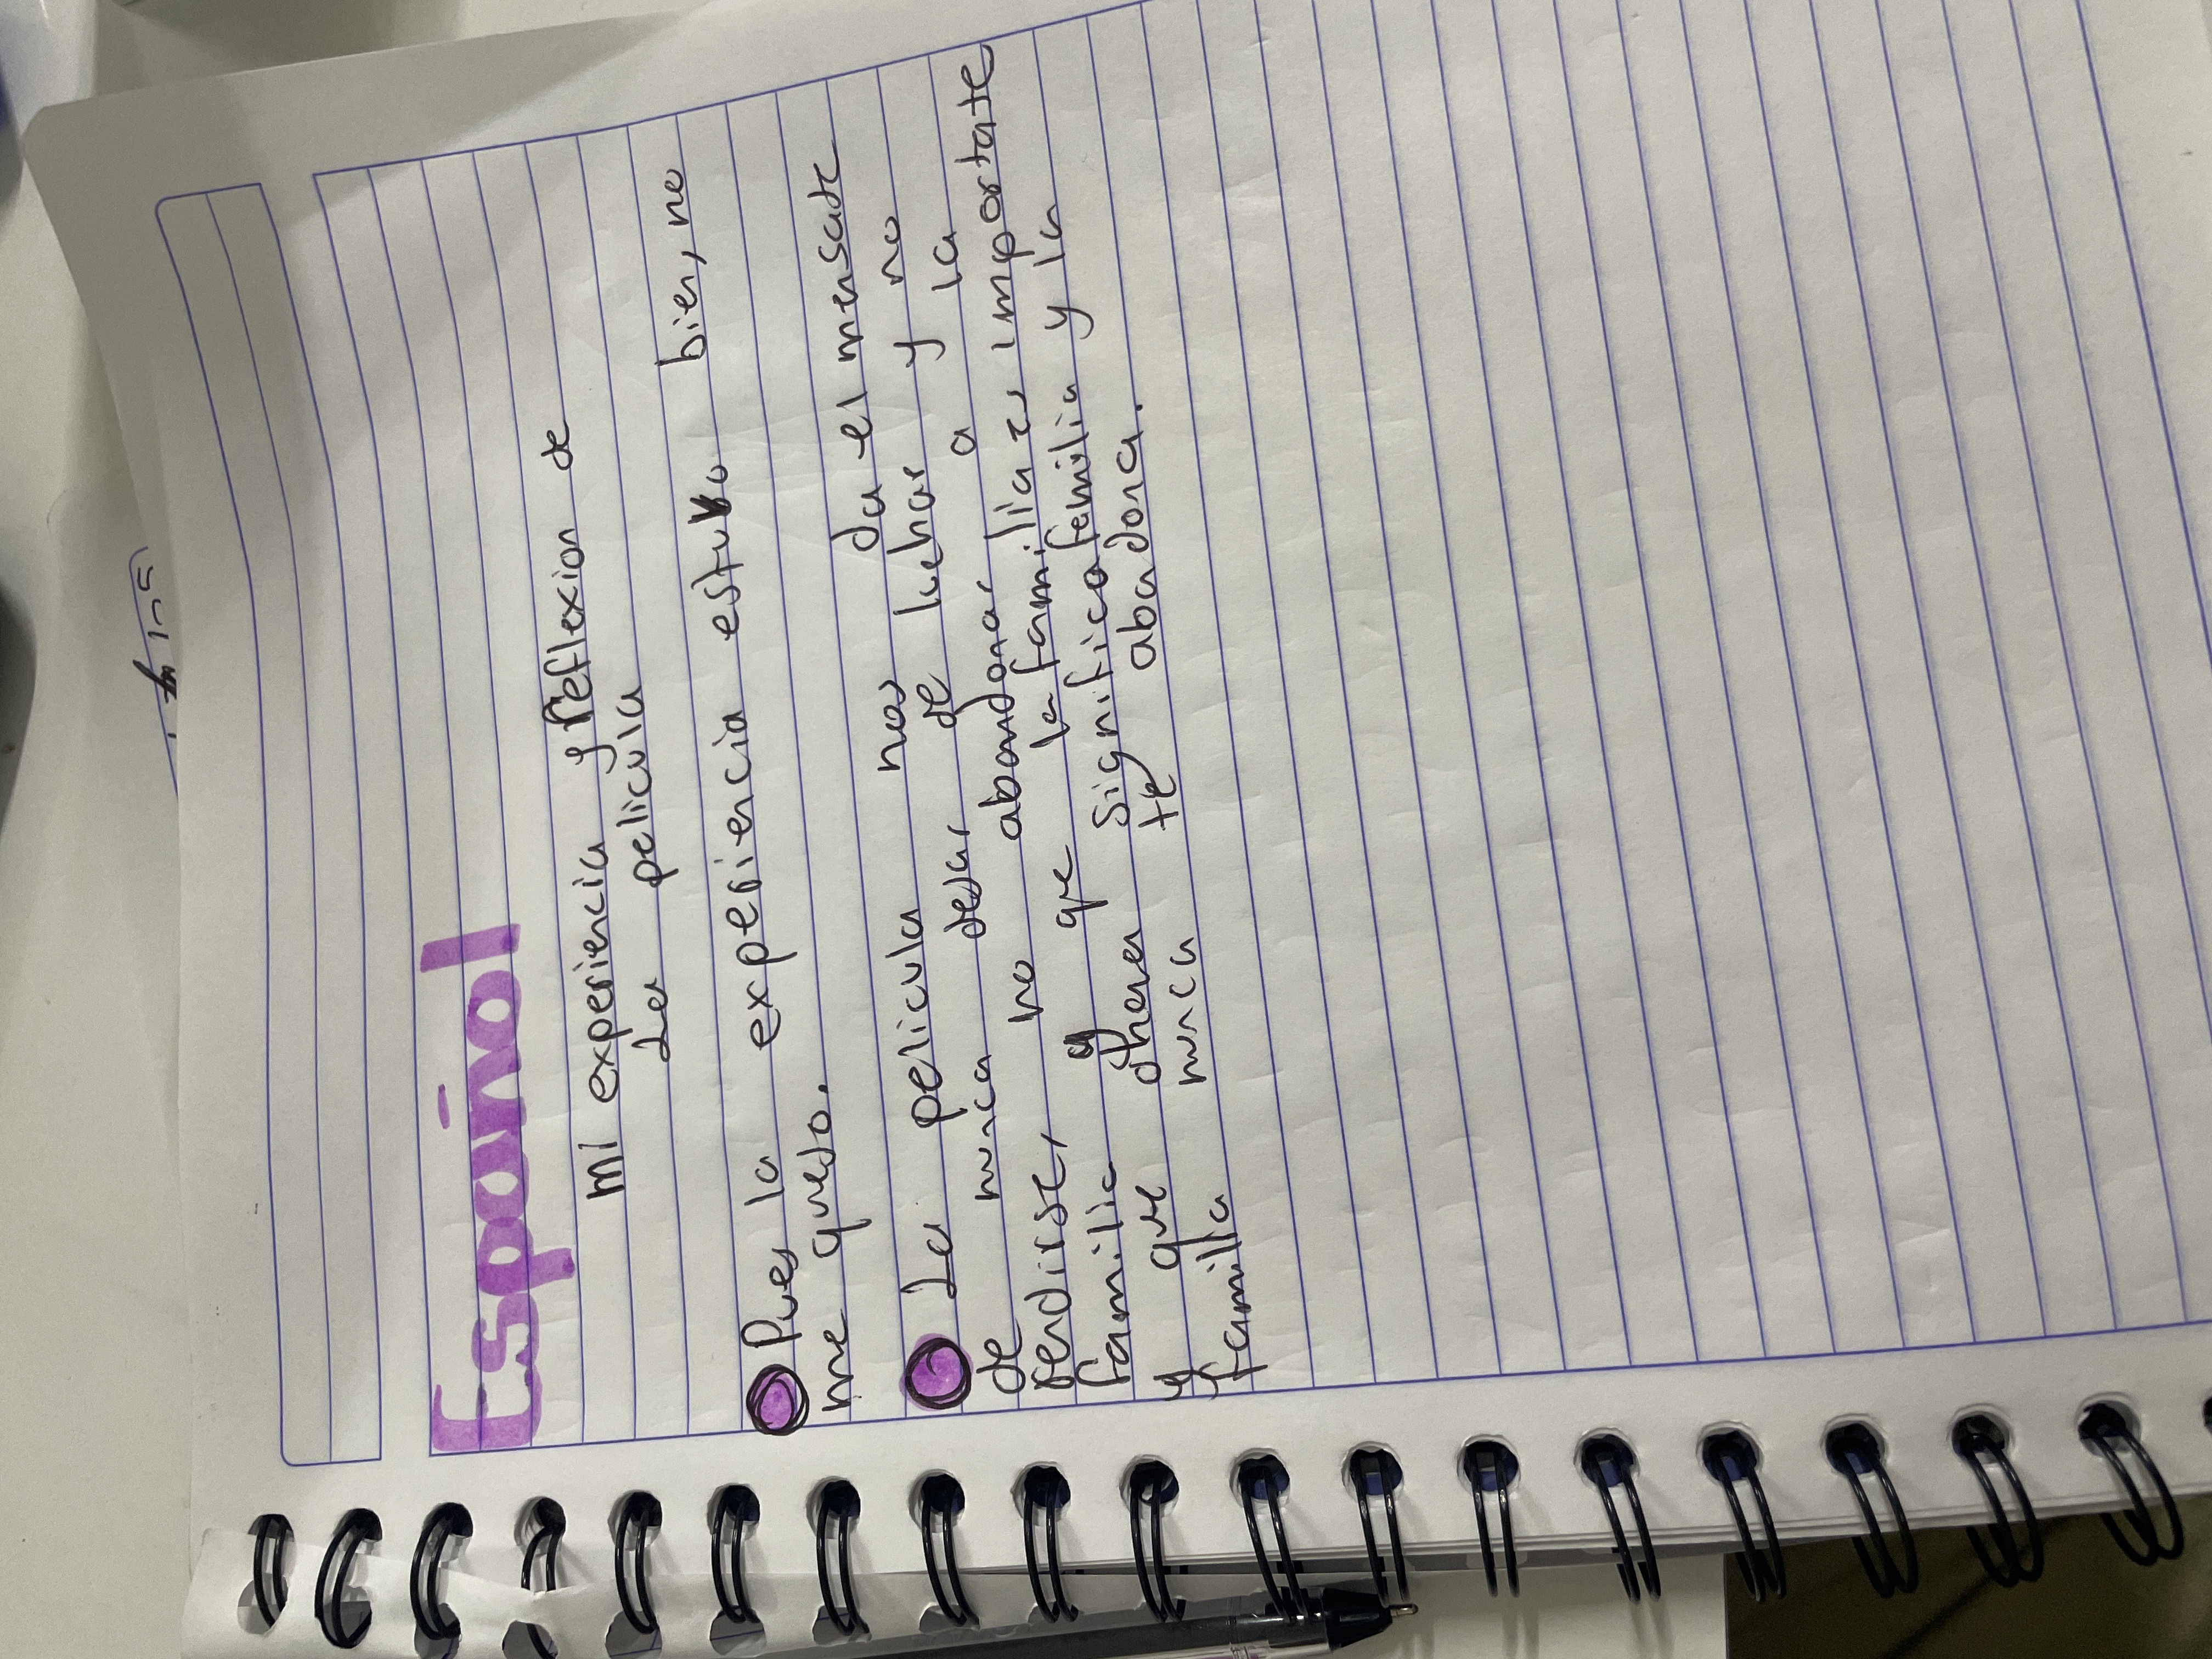 Español
mi experiencia y reflexion de
La pelicula
Pues la experiencia estubo bien, no
me quejo.
La pelicula nos da el mensaje
de nunca dejar de luchar y no
rendirse, no abandonar a la
familia y que la familia es importate
y que Ohana significa familia y la
familia nunca te abandona.